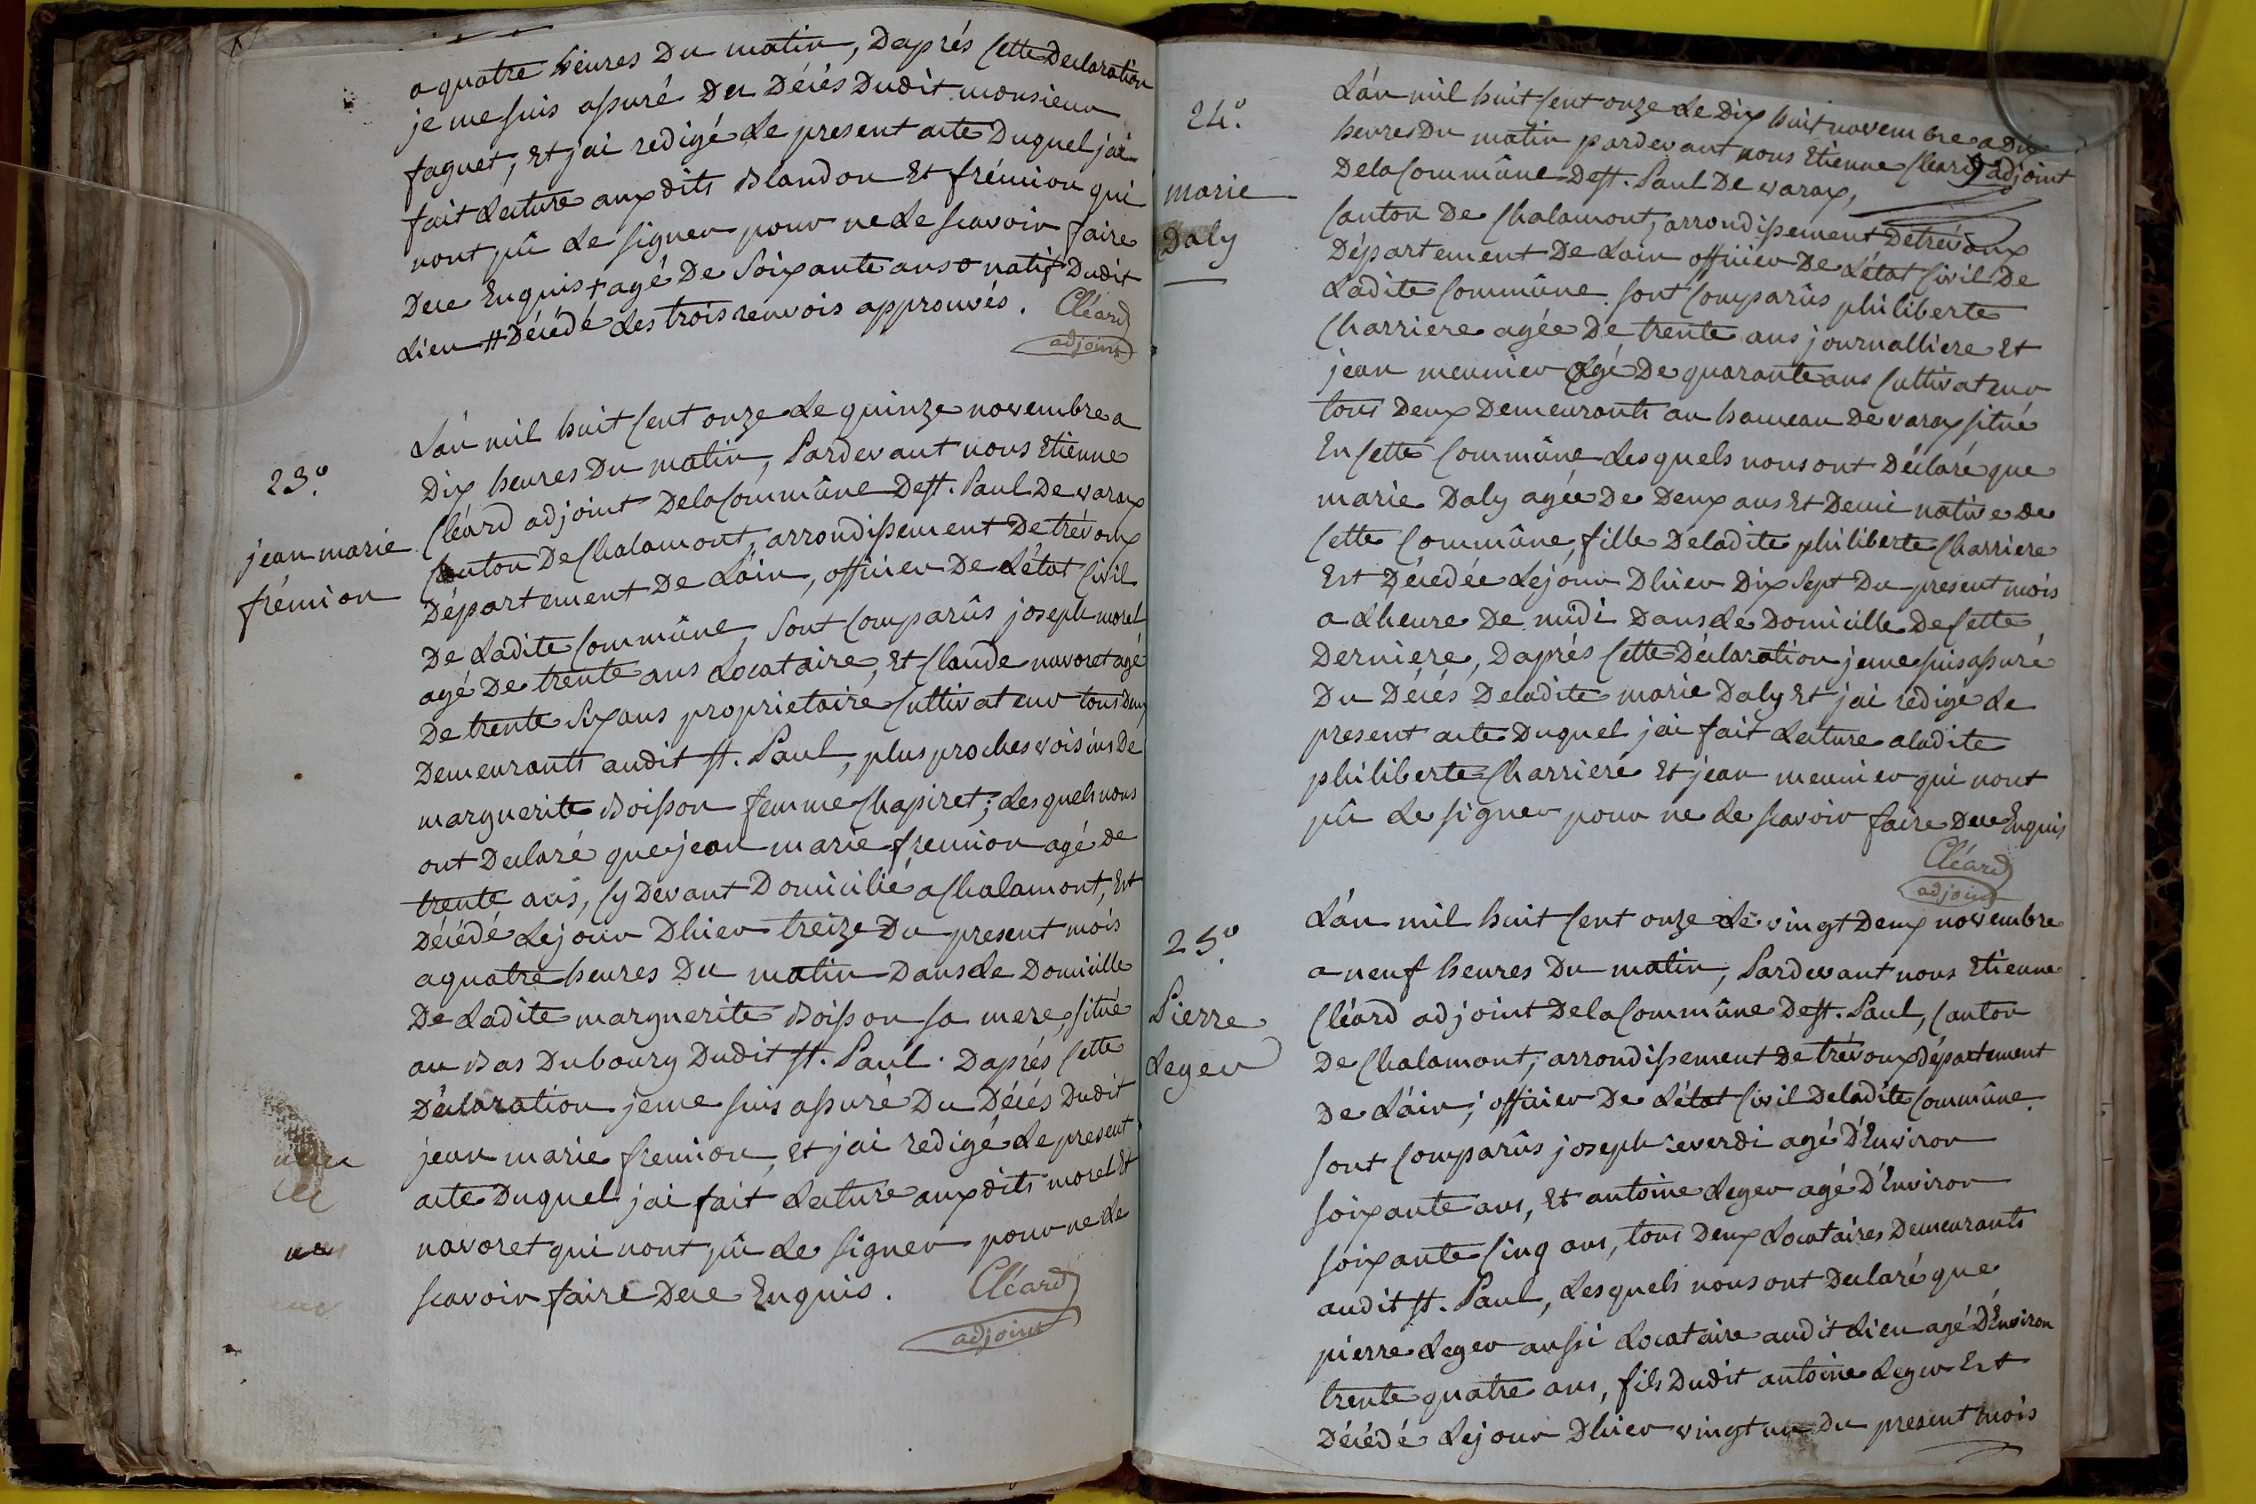 a quatre heures Du matin, Daprés Cette Declaration
je me suis assuré Du Décés Dudit monsieur
faguet, Et jai redigé Le present acte Duquel jai
fait Lecture auxdits Blandon Et frémion qui
nont pû Le signer pour ne Le scavoir faire
Dece Enquis + agé De Soixante ans o natif Dudit
Lieu # Décédé Les trois renvois approuvés. Cléard
adjoint
23.º
jean marie
frémion
Lán mil huit Cent onze Le quinze novembre a
Dix heures Du matin, Pardevant nous Etienne
Cléard adjoint Dela Commûne Dest. Paul De varax
Canton De Chalamont, arrondissement De trévoux
Département De Láin, officier De Létat Civil
De Ladite Commûne, Sont Comparûs joseph morel
agé De trente ans Locataire, Et Claude navoret agé
De trente Six ans proprietaire Cultivateur tous Deux
Demeurants audit st. Paul, plus proches voisins De
marguerite Boisson femme Chapiret; Lesquels nous
ont Declaré que jean marie fremion agé de
trente ans, Cy Devant Domicilié a Chalamont, Est
Décédé Le jour Dhier treize Du present mois
a quatre heures Du matin Dans Le Domicille
De Ladite marguerite Boisson sa mere, situé
au Bas Dubourg Dudit st. Paul. Daprés Cette
Déclaration je me suis assuré Du Décés Dudit
jean marie fremion, Et jai redigé Le present
acte Duquel jai fait Lecture auxdits morel Et
navoret qui nont pû Le signer pour ne Le
scavoir faire Dece Enquis. Cléard
adjoint
24.º
marie
Daly
Lán mil huit Cent onze Le Dix huit novembre a Dix
heures Du matin pardevant nous Etienne Cleard adjoint
Dela Commûne Dest. Paul De varax,
Canton De Chalamont, arrondissement De trévoux
Département De Lain officier De Létat Civil De
Ladite Commûne. sont Comparûs philiberte
Charriere agée De trente ans journalliere Et
jean meunier Agé De quarante ans Cultivateur
tous Deux Demeurants au hameau De varax situé
En Cette Commûne Lesquels nous ont Déclaré que
marie Daly agée De Deux ans Et Demi native De
Cette Commûne, fille De ladite philiberte Charriere
Est Décedée Le jour Dhier Dix Sept Du present mois
a Lheure De midi Dans Le Domicille De Cette
Derniere, Daprés Cette Déclaration je me suis assuré
Du Décés De ladite marie Daly Et jai redigé Le
present acte Duquel jai fait Lecture a ladite
philiberte Charriere Et jean meunier qui nont
pû Le signer pour ne Le scavoir faire Dece Enquis
Cléard
adjoint
25.º
Pierre
Leger
Lán mil huit Cent onze Le vingt Deux novembre
a neuf heures Du matin, Pardevant nous Etienne
Cléard adjoint Dela Commûne Dest. Paul, Canton
De Chalamont, arrondissement De trévoux Département
De Láin; officier De Létat Civil De ladite Commûne.
sont Comparûs joseph agé D'Environ
soixante ans, Et antoine Leger agé D'Environ
soixante Cinq ans, tous Deux Locataires Demeurants
audit st. Paul, Lesquels nous ont Declaré que
pierre Leger aussi Locataire audit Lieu agé D'Environ
trente quatre ans, fils Dudit antoine Leger Est
Décédé Le jour Dhier vingt un Du present mois